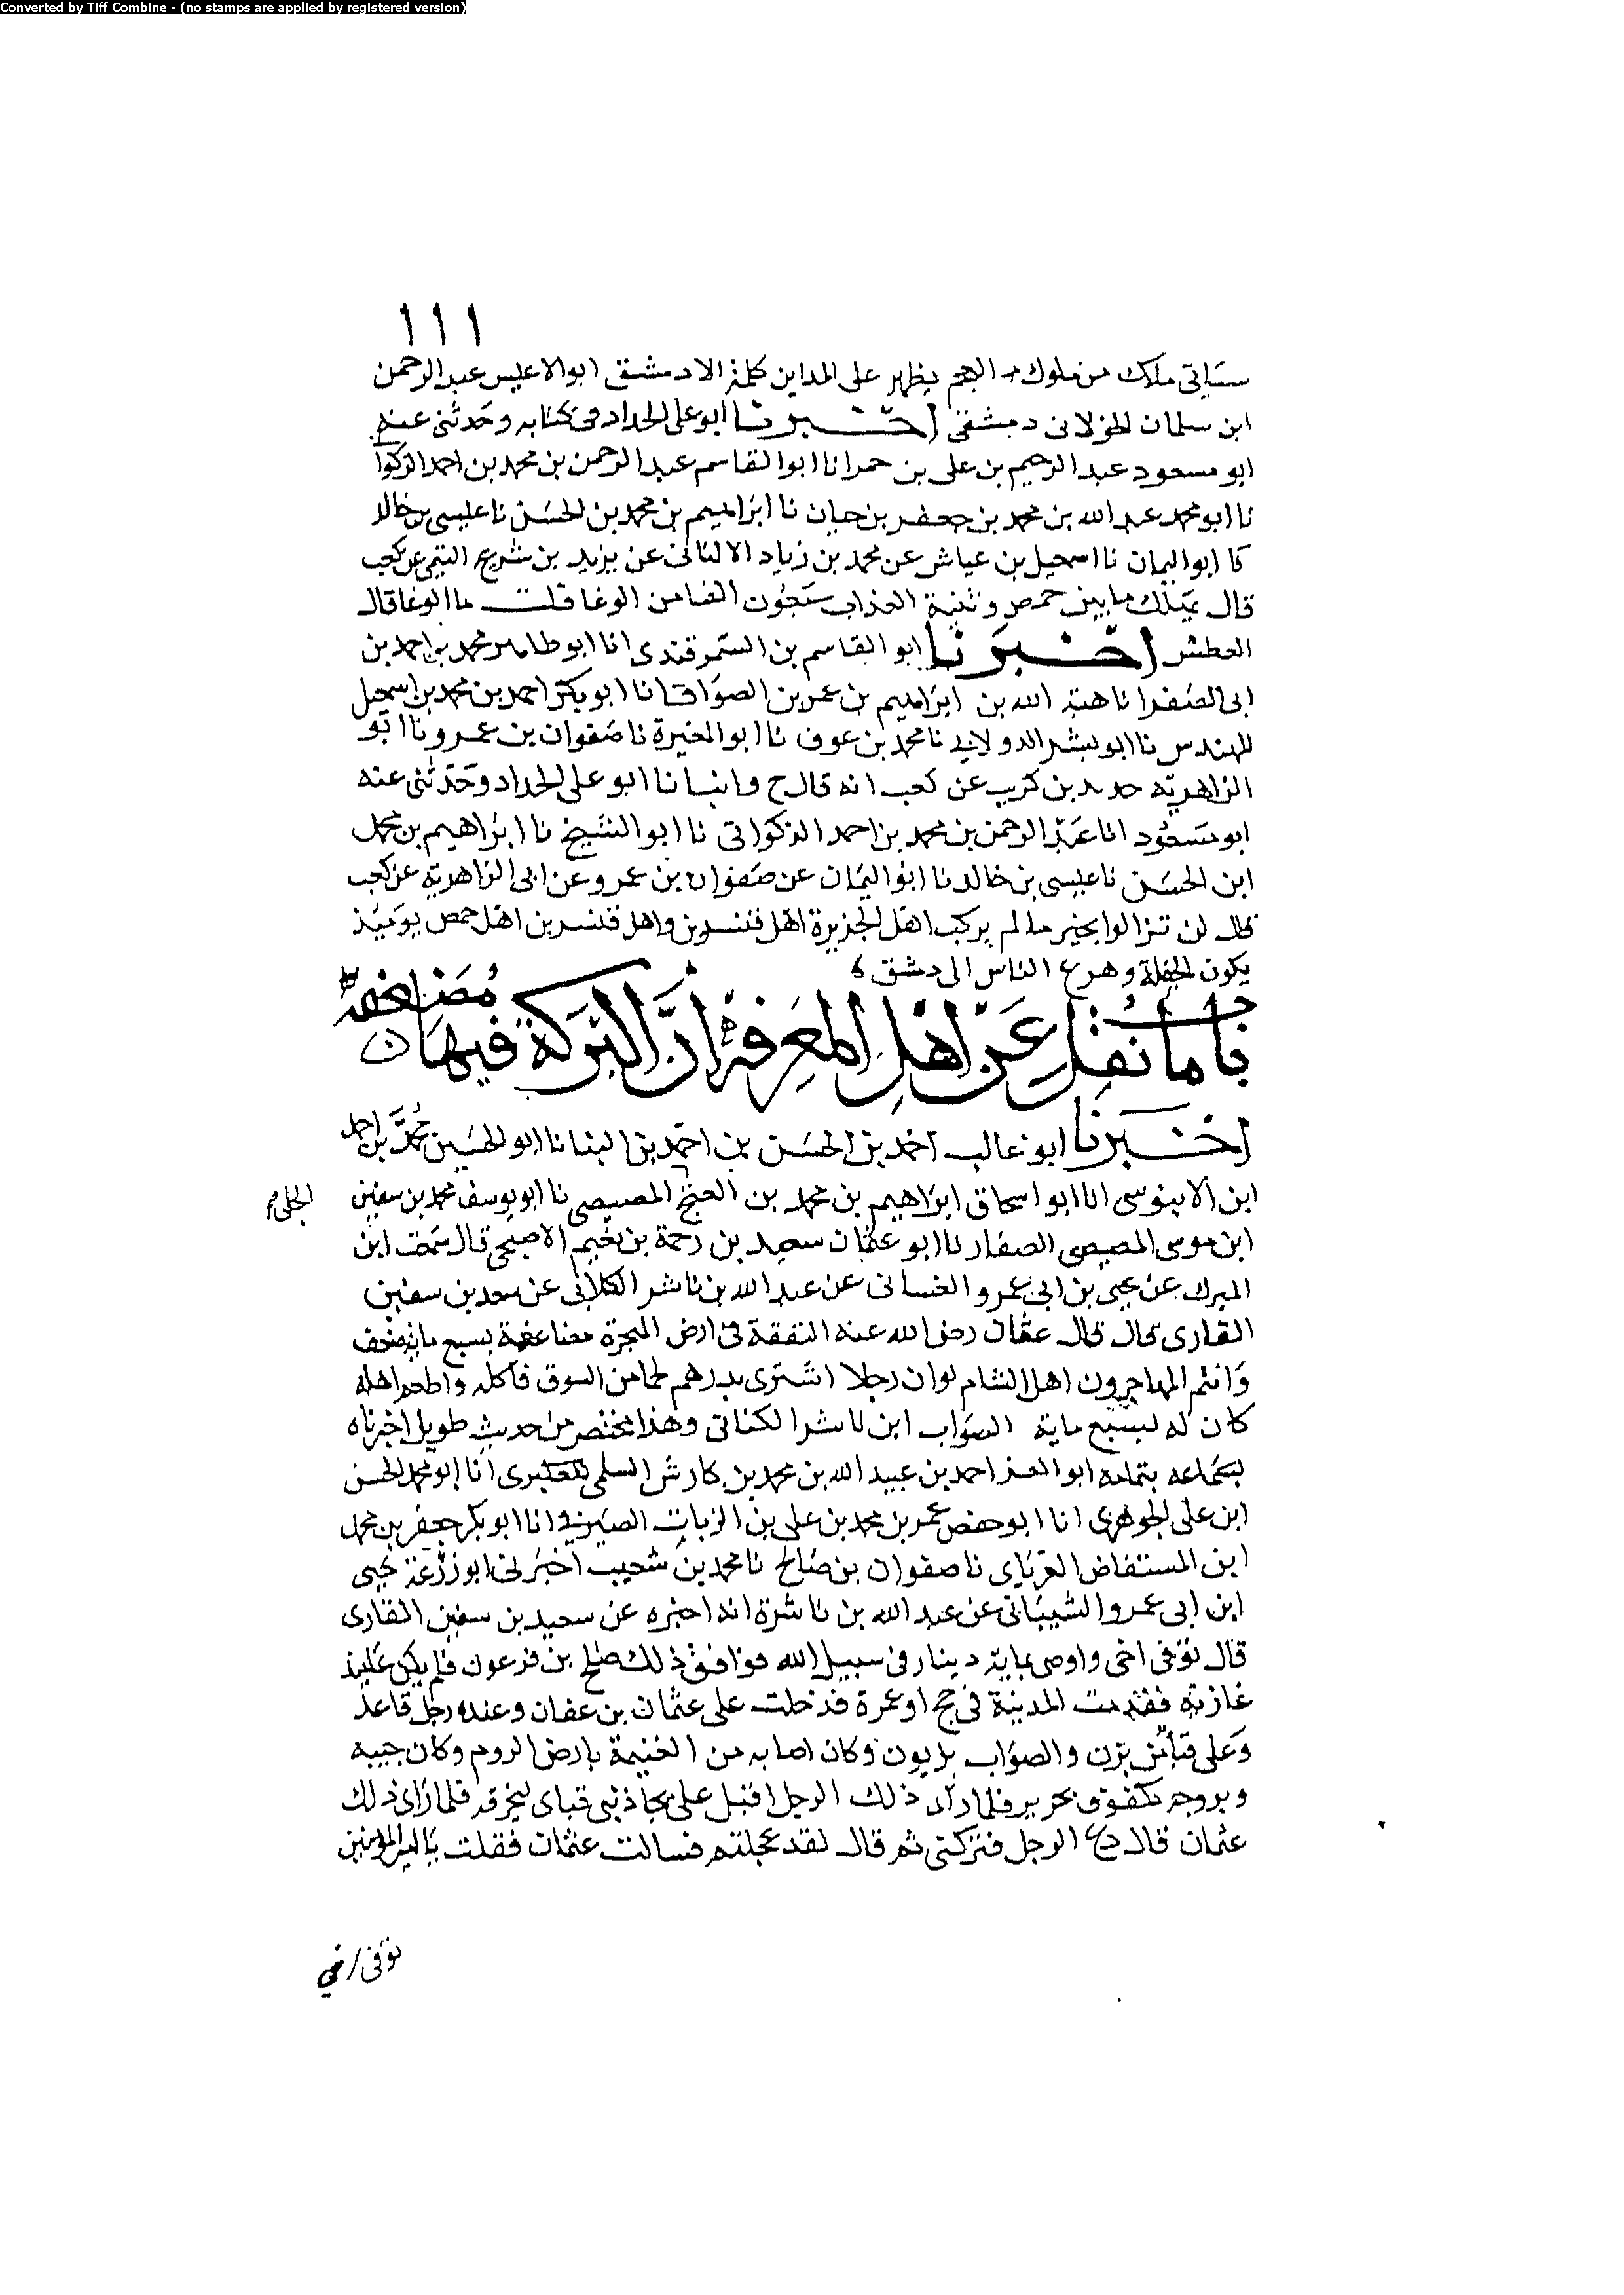 Converted by Tiff Combine - (no stamps are applied by registered version)
١١١
ستأتي ملك من ملوك العجم يظهر على المداين كلها الا دمشق ابو الاعيس عبد الرحمن
ابن سلمان الخولاني دمشقي اخبرنا ابو علي الحداد في كتابه وحدثني عنه
ابو مسعود عبد الرحيم بن علي بن حمد انا ابو القاسم عبد الرحمن بن محمد بن احمد الذكوا
نا ابو محمد عبد الله بن محمد بن جعفر بن حيان نا ابراهيم بن محمد بن الحسن نا عيسى بن خالد
نا ابو اليمان نا اسمعيل بن عياش عن محمد بن زياد الالهاني عن يزيد بن شريح التيمي عن كعب
قال يهلك ما بين حمص وثنية العذاب سبعون الفا من الوغا قلت ما الوغا قال
العطش اخبرنا ابو القاسم بن السمرقندي انا ابو طاهر محمد بن احمد بن
ابي الصقر انا هبة الله بن ابراهيم بن عمر بن الصواف انا ابو بكر احمد بن محمد بن اسمعيل
المهندس نا ابو بشر الدولابي نا محمد بن عوف نا ابو المغيرة نا صفوان بن عمرو نا ابو
الزاهرية حدير بن كريب عن كعب انه قال ح وانبانا ابو علي الحداد وحدثني عنه
ابو مسعود انا عبد الرحمن بن محمد بن احمد الذكواني نا ابو الشيخ نا ابراهيم بن محمد
ابن الحسن نا عيسى بن خالد نا ابو اليمان عن صفوان بن عمرو عن ابي الزاهرية عن كعب
قال لن تزالوا بخير ما لم يركب اهل الجزيرة اهل قنسرين واهل قنسرين اهل حمص يوميذ
يكون الجفلة وهرع الناس الى دمشق
باب ما نقل عن اهل المعرفة ان البركة فيها مضاعفة
اخبرنا ابو غالب احمد بن الحسن بن احمد بن البنا نا ابو الحسين محمد بن احمد
ابن الابنوسي انا ابو اسحاق ابراهيم بن محمد بن الفتح المصيصي نا ابو يوسف محمد بن سفين
الجلي
ابن موسى المصيصي الصفار نا ابو عثمان سعيد بن رحمة بن نعيم الاصبحي قال سمعت ابن
المبرك عن يحيى بن ابي عمرو الغساني عن عبد الله بن ناشر الكلابي عن سعد بن سفين
القاري قال قال عثمان رضي الله عنه النفقة في ارض الهجرة مضاعفة بسبع ماية ضعف
وانتم المهاجرون اهل الشام لو ان رجلا اشترى بدرهم لحما من السوق فاكله واطعم اهله
كان له لسبع ماية الصواب ابن ناشر الكناني وهذا مختصر من حديث طويل اخبرناه
بتمامه ابو العز احمد بن عبيد الله بن محمد بن كارش السلمي العكبري انا ابو محمد الحسن
ابن علي الجوهري انا ابو حفص عمر بن محمد بن علي بن الزيات الصيرفي انا ابو بكر جعفر بن محمد
ابن المستفاض الفريابي نا صفوان بن صالح نا محمد بن شعيب اخبرني ابو زرعة يحيى
ابن ابي عمرو الشيباني عن عبد الله بن ناشرة انه اخبره عن سعيد بن سفين القاري
قال توفي اخي واوصى بماية دينار في سبيل الله فوافق ذلك صلح بن فرعون فلم يكن عليذ
غازية فقدمت المدينة في حج او عمرة فدخلت على عثمان بن عفان وعنده رجل قاعد
وعلي قبا من بزن والصواب بزيون وكان اصابه من الغنيمة بارض الروم وكان جيبه
وبروجه مكفوف بحرير فلما راى ذلك الرجل اقبل علي يجاذبني قباي ليخرقه فلما راى ذلك
عثمان قال دع الرجل فتركني ثم قال لقد عجلتم فسالت عثمان فقلت يا امير المومنين
توفي اخي